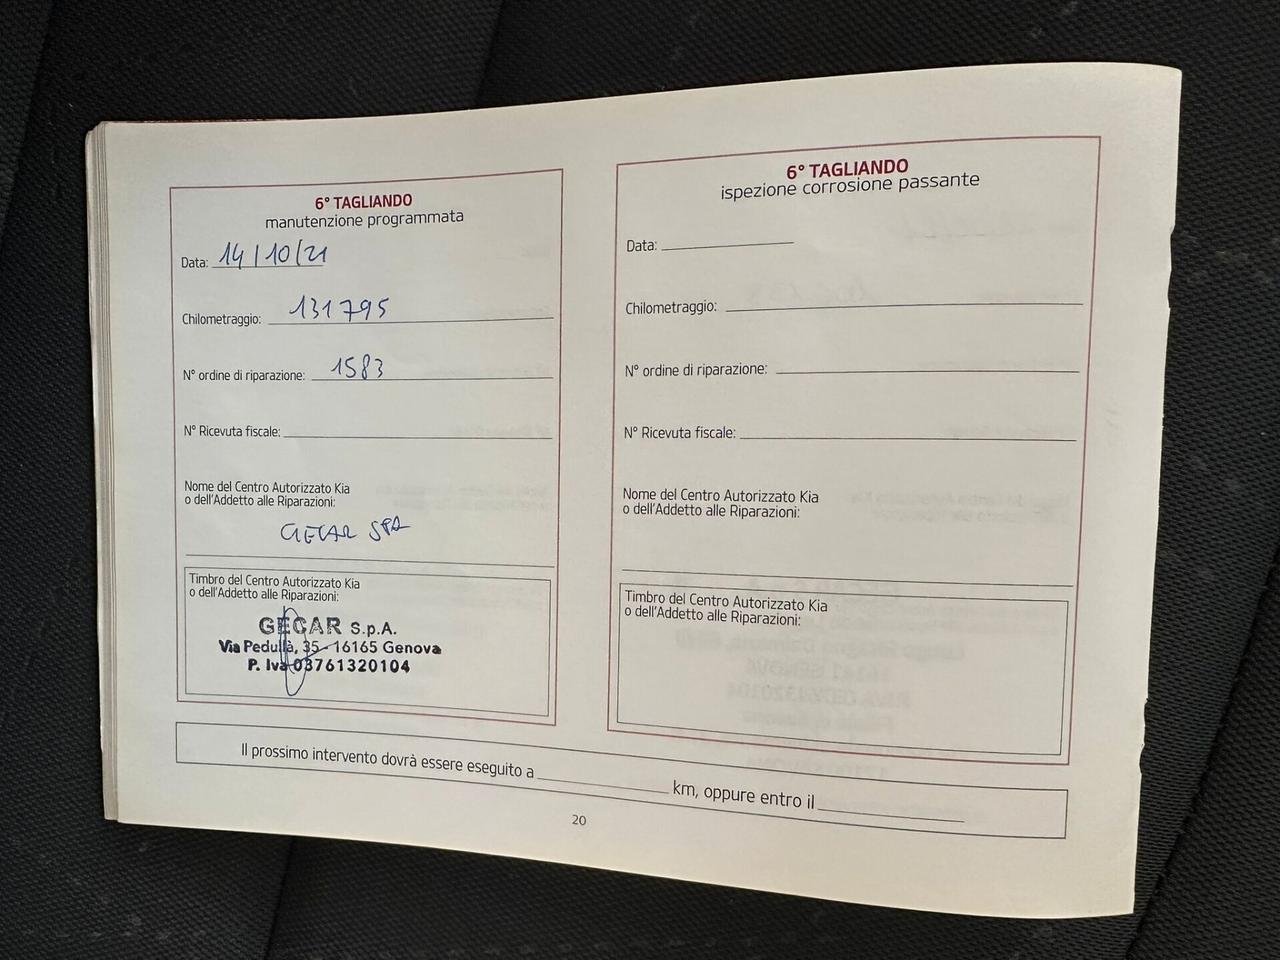 6° TAGLIANDO
manutenzione programmata
Data: 14/10/21
Chilometraggio: 131795
N° ordine di riparazione: 1583
N° Ricevuta fiscale:
Nome del Centro Autorizzato Kia
o dell'Addetto alle Riparazioni:
GECAR SPA
Timbro del Centro Autorizzato Kia
o dell'Addetto alle Riparazioni:
GECAR S.p.A.
Via Pedullà, 35 - 16165 Genova
P. Iva 03761320104
6° TAGLIANDO
ispezione corrosione passante
Data:
Chilometraggio:
N° ordine di riparazione:
N° Ricevuta fiscale:
Nome del Centro Autorizzato Kia
o dell'Addetto alle Riparazioni:
Timbro del Centro Autorizzato Kia
o dell'Addetto alle Riparazioni:
Il prossimo intervento dovrà essere eseguito a km, oppure entro il
20